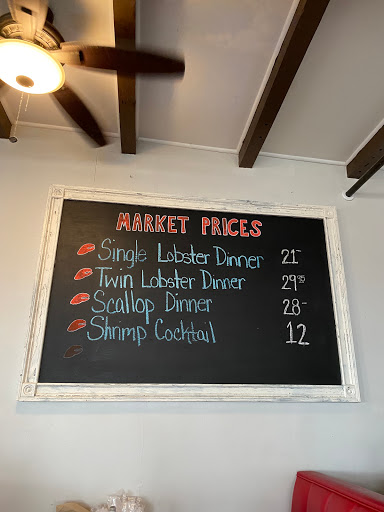 MARKET PRICES
Single Lobster Dinner 21-
Twin Lobster Dinner 29.99
Scallop Dinner 28-
Shrimp Cocktail 12